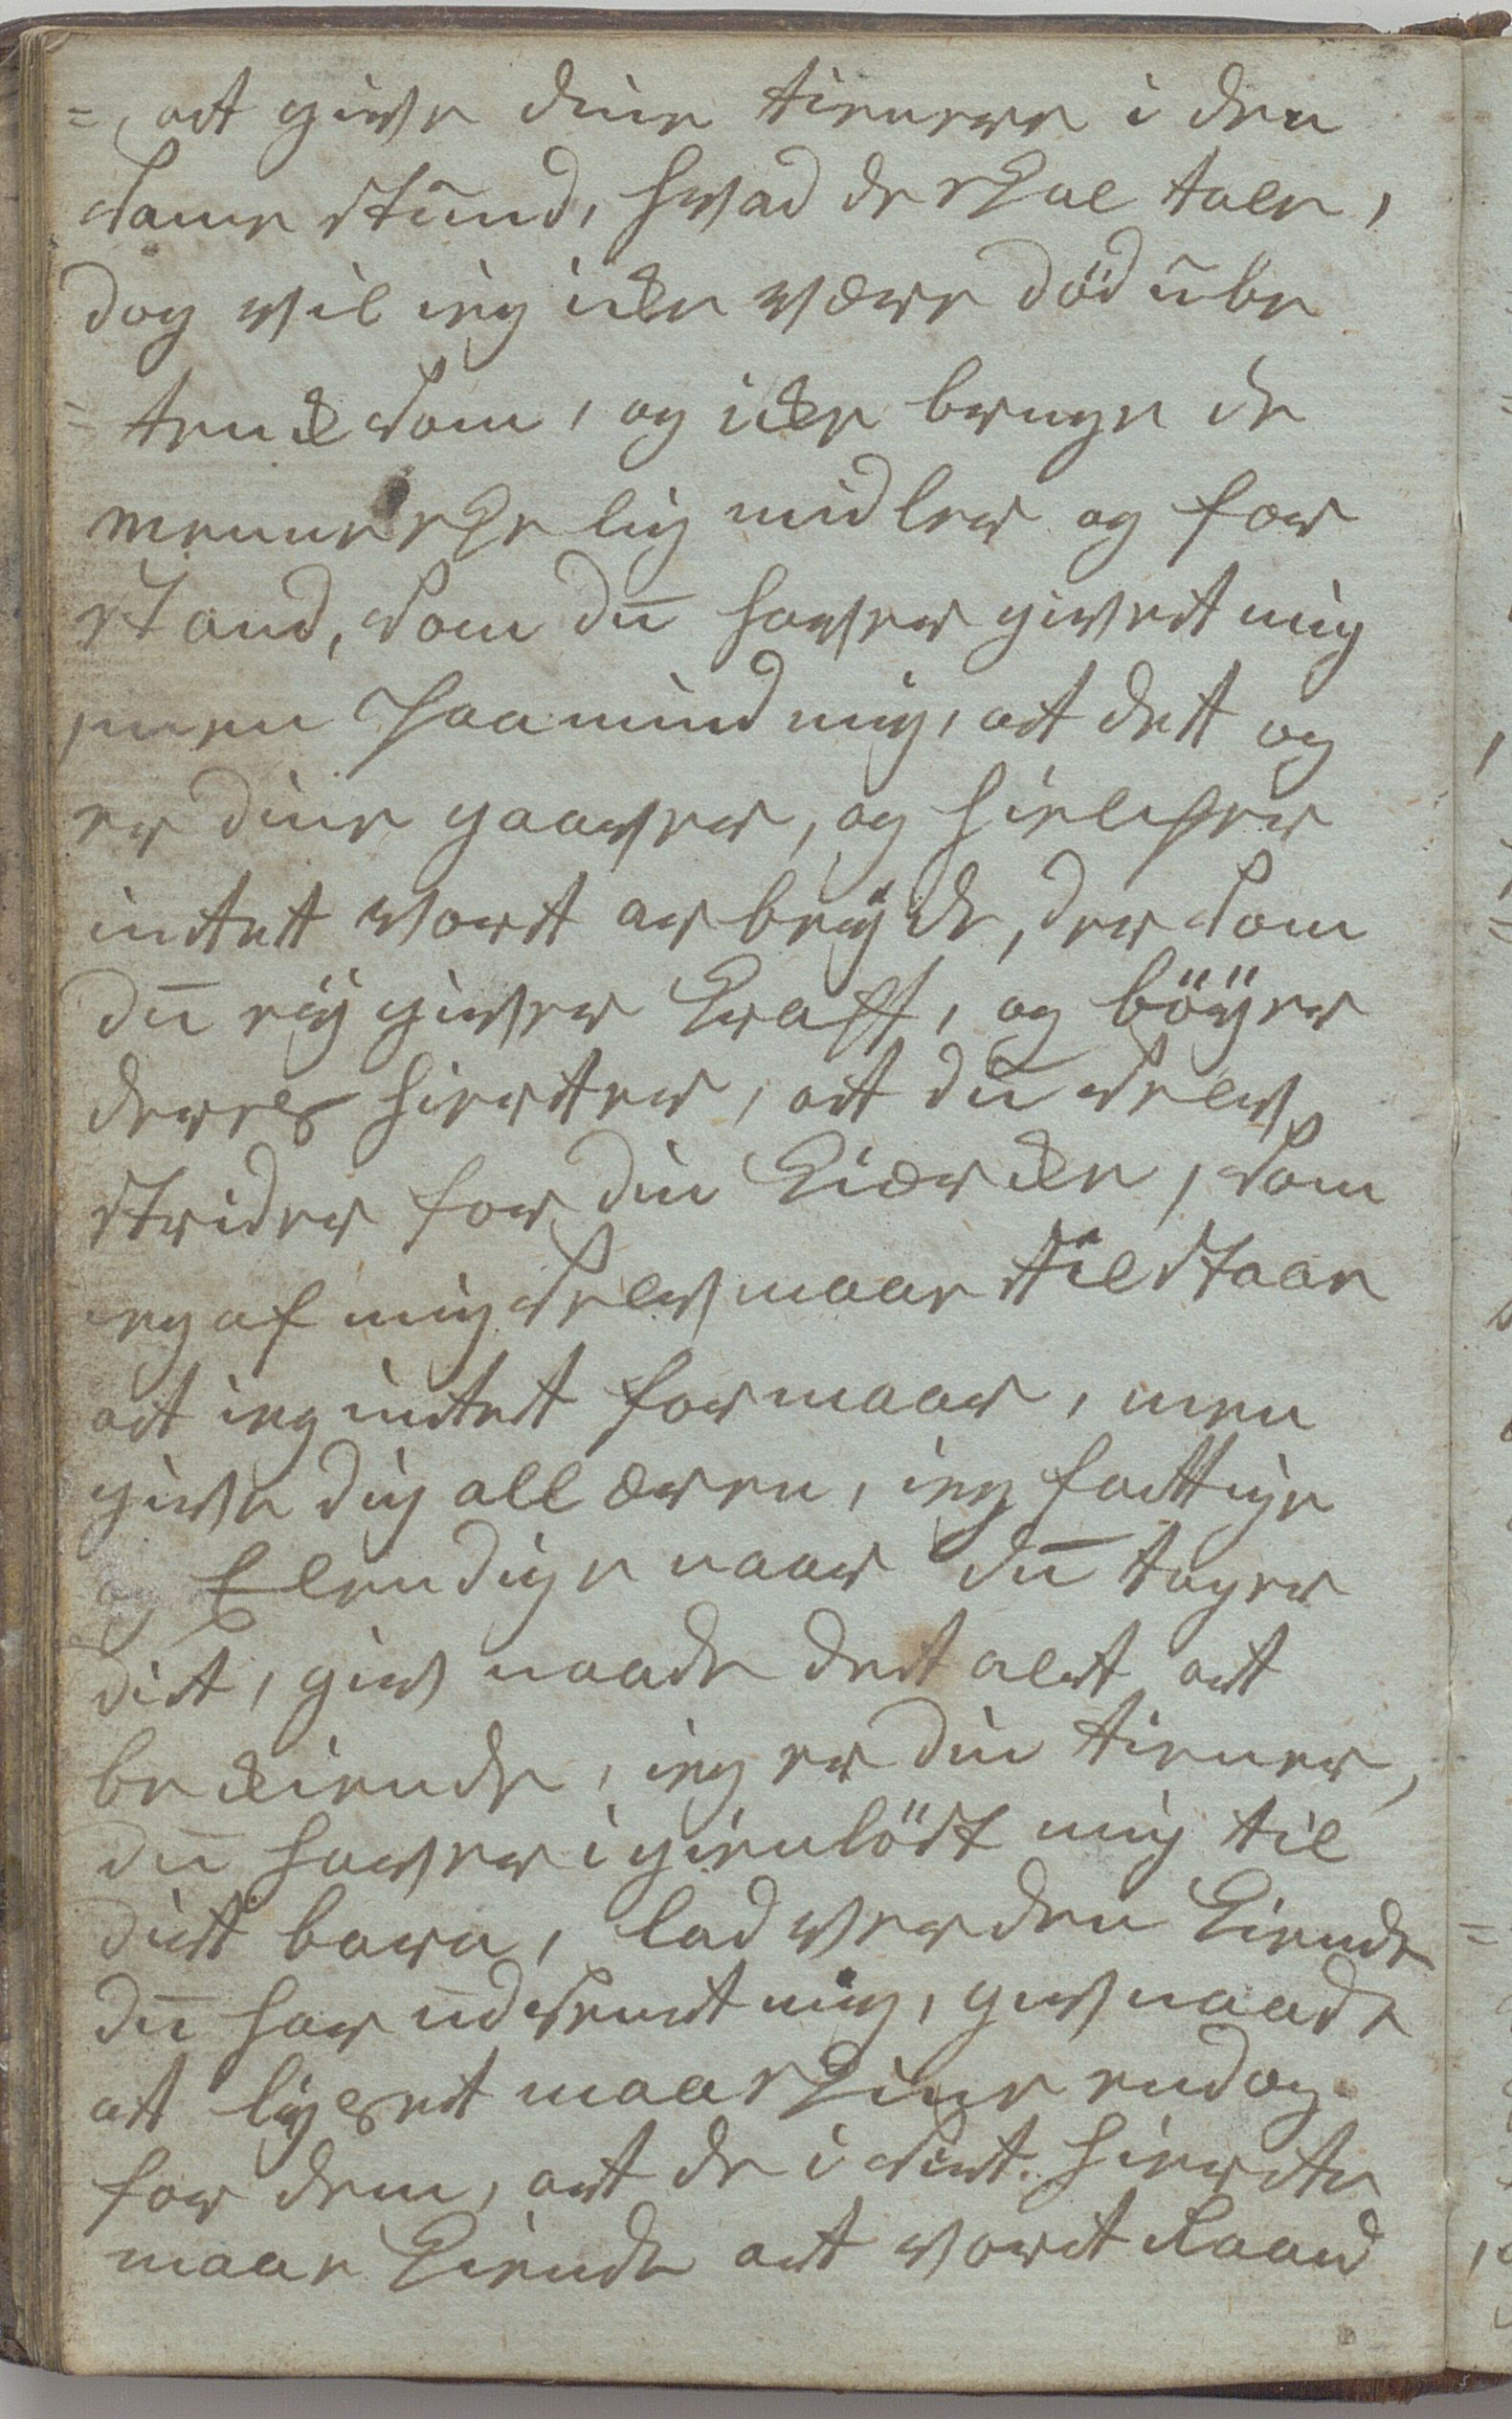 = at give dine tienere i den
samme stund, hvad de skal tale,
dog vil ieg icke være död ube
= tencksom, og icke bruge de
menneskelig midler og for
stand, som du haver givet mig
men paamind mig, at dett og
er dine gaaver, og hielper
intet vort arbeyde, der som
du ey giver kraft, og böyer
deres hierter, at du selv
strider for din kiercke, som
ieg af mig selv maae tilstaae
at ieg intet formaar, men
give dig all æren, ieg fattige
og Elendige naar du tager
dit, giv naade det alt at
bekiende, ieg er din tiener,
du haver igienlöst mig til
ditt barn, lad verden kiende
du har udsent mig, giv naade
at lyset maa skine endog
for dem, at de i sint hierte
maae kiende at vort Raad